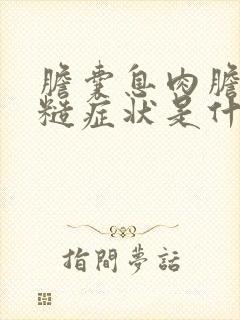 膽囊息肉膽
糙症狀是什
指間夢話